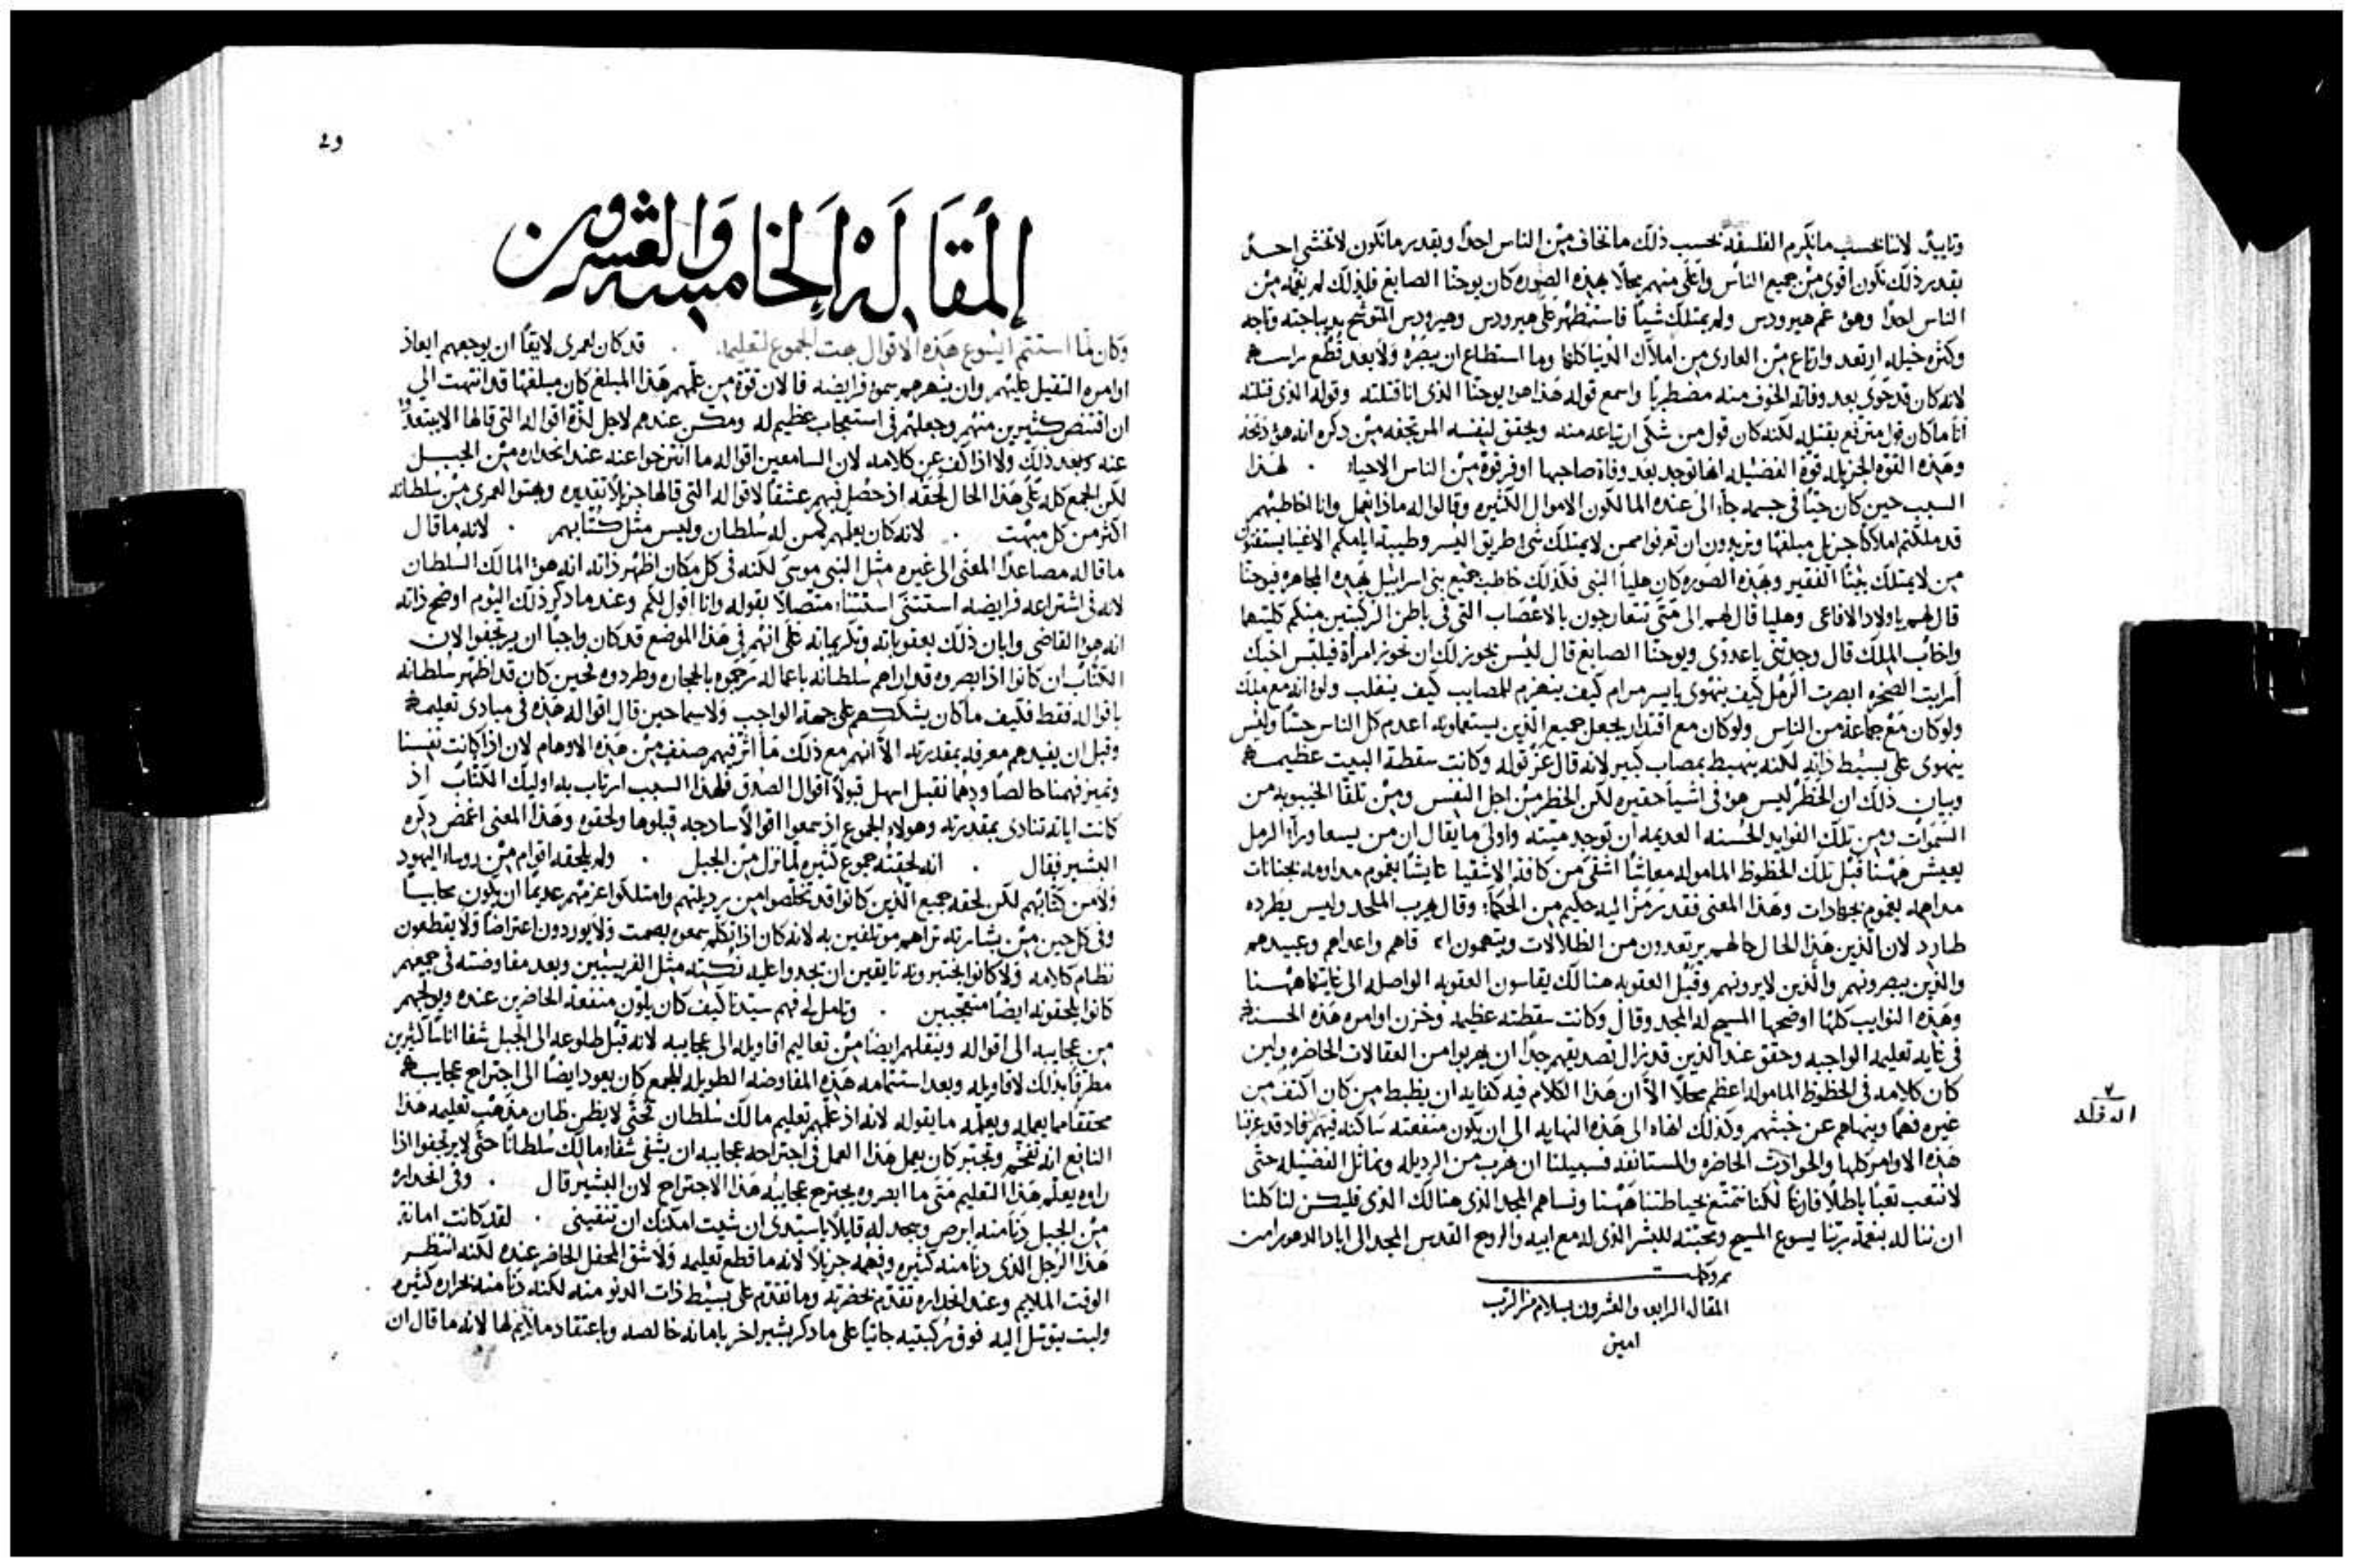 وتاييدٌ لاننا بحسب ما نكرم الفلسفه بحسب ذلك ما نخاف من الناس احدًا وبقدر ما نكون لا نخشى احدًا
بقدر ذلك نكون اقوى من جميع الناس واعلى منهم محلًا بهذه الصوره كان يوحنا الصابغ فلذلك لم يغمه من
الناس احدًا وهو غم هيرودس ولم يمتلك شيئًا فاستظهر على هيرودس وهيرودس المتوشح بديباجته وتاجه
وكثره خيله ارتعد وارتاع من العارى من املاك الدنيا كلها وما استطاع ان يبصره ولا بعد قطع راسه
لانه كان قد حوى بعد وفاته الخوف منه مضطربًا واسمع قوله هذا هو يوحنا الذى انا قتلته وقوله الذى قتلته
انا ما كان قول مترفع بقتله لكنه كان قول من شكى ارتياعه منه ويحقق لنفسه المرتجفه من ذكره انه هو ذبحه
وهذه القوه الجزيله قوة الفضيله انها توجد بعد وفاة صاحبها اوفر قوة من الناس الاحياء . لهذا
السبب حين كان حيًا فى جسمه جاء الى عنده المالكون الاموال الكثيره وقالوا له ماذا نعمل وانا اخاطبهم
قد ملكتم املاكًا جزيل مبلغها وتريدون ان تعرفوا ممن لا يمتلك شى طريق اليسر وطيبة ايامكم الاغنيا يستفتون
من لا يمتلك بيتًا الفقير وبهذه الصوره كان هليا النبى فكذلك خاطب جميع بنى اسراييل بهذه المجاهره فيوحنا
قال لهم يا اولاد الافاعى وهليا قال لهم الى متى تتعارجون بالاعصاب التى فى باطن الركبتين منكم كلتيهما
واخاب الملك قال وجدتنى يا عدوى ويوحنا الصابغ قال ليس يجوز لك ان تحوز امرأة فيلبس اخيك
أرايت الصخره ابصرت الرمل كيف ينهوى بايسر مرام كيف ينهزم للمصايب كيف ينغلب ولو انه مع ملك
ولو كان مع جماعة من الناس ولو كان مع اقتدار يجعل جميع الذين يستعملونه اعدم كل الناس حسًا وليس
ينهوى على بسيط ذاته لكنه ينهبط بمصاب كبير لانه قال عز قوله وكانت سقطة البيت عظيمه
وبيان ذلك ان الخطر ليس هو فى اشيا حقيره لكن الخطر من اجل النفس ومن تلقا الخيبوبه من
السموات ومن تلك الفوايد الحسنه العديمه ان توجد ميته واولى ما يقال ان من يسعا ورآء الرمل
يعيش ههنا قبل تلك الحظوظ المامول معاشًا اشقى من كافة الاشقيا عايشًا بغموم مداومه بجنانات
مداهمه بغموم بجهادات وهذا المعنى فقد رمز اليه حكيم من الحكماء وقال يهرب الملحد وليس يطرده
طارد لان الذين هذا الحال حالهم يرتعدون من الظلالات ويتهمون اصدقاهم واعداهم وعبيدهم
والذين يبصرونهم والذين لا يرونهم وقبل العقوبه هنالك يقاسون العقوبه الواصله الى غايتها ههنا
وهذه النوايب كلها اوضحها المسيح له المجد وقال وكانت سقطته عظيمه وخزن اوامره هذه الحسنه
فى غايه تعليمه الواجبه وحقق عند الذين قد يزال تصديقهم جدًا ان يهربوا من العقالات الحاضره ولين
كان كلامه فى الحظوظ الماموله اعظم محلًا الا ان هذا الكلام فيه كفايه ان يظبط من كان اكثف من
غيره فهمًا وينهاهم عن خبثهم وكذلك انهاه الى هذه النهايه الى ان يكون منفعته ساكنه فيهم فاذ قد عرفنا
هذه الاوامر كلها والحوادث الحاضره والمستانفه فسبيلنا ان نهرب من الرديله ونماثل الفضيله حتى
لا نتعب تعبًا باطلًا فارغًا لكنا نتمتع بحياطتنا ههنا ونساهم المجد الذى هنالك الذى فليكن لنا كلنا
ان نناله بنعمة ربنا يسوع المسيح ومحبته للبشر الذى له مع ابيه والروح القدس المجد الى اباد الدهور امين
تمت وكملت
المقاله الرابعه والعشرون بسلام من الرب
امين
29
المقَالَة الخامسَة وَالعشرون
وكان لمّا استتم ايسوع هذه الاقوال بهت الجموع لتعليمه . قد كان لعمرى لايقًا ان يوجعهم ايعاز
اوامره الثقيل عليهم وان ينهرهم سمو فرايضه فالان قوة من علمهم هذا المبلغ كان مبلغها قد انتهت الى
ان اقتنص كثيرين منهم وجعلهم فى استعجاب عظيم له ومكن عندهم لاجل لذة اقواله التى قالها الا يبتعدوا
عنه وبعد ذلك ولا اذ كف عن كلامه لان السامعين اقواله ما انتزحوا عنه عند انحداره من الجبل
لكن الجمع كله على هذا الحال لحقه اذ حصل فيهم عشقًا لاقواله التى قالها جزيلًا تقديره وبهتوا لعمرى من سلطانه
اكثر من كل مبهت . لانه كان يعلمهم كمن له سلطان وليس مثل كتابهم . لانه ما قال
ما قاله مصاعدًا المعنى الى غيره مثل النبى موسى لكنه فى كل مكان اظهر ذاته انه هو المالك السلطان
لانه فى اشتراعه فرايضه استثنى استثناءً متصلًا بقوله وانا اقول لكم وعند ما ذكر ذلك اليوم اوضح ذاته
انه هو القاضى وابان ذلك بعقوباته وتكريماته على انهم فى هذا الموضع قد كان واجبًا ان يرتجفوا لان
الكتاب ان كانوا اذ ابصروه قد اراهم سلطانه باعماله ترجموه بالحجاره وطردوه فحين كان قد اظهر سلطانه
باقواله فقط فكيف ما كان يشككهم على جهة الواجب ولا سيما حين قال اقواله هذه فى مبادى تعليمه
وقبل ان يفيدهم معرفه بمقدرته الا انهم مع ذلك ما أثر فيهم صنف من هذه الاوهام لان اذا كانت نفسنا
وتميز فهمنا خالصًا ودهما نقبل اسهل قبولًا اقوال الصدق فلهذا السبب ارتاب به اوليك الكتاب اذ
كانت اياته تنادى بمقدرته وهولاء الجموع اذ سمعوا اقوالًا ساذجه قبلوها ولحقوه وهذا المعنى اغمض ذكره
البشير فقال . انه لحقته جموع كثيره لما نزل من الجبل . ولم يلحقه اقوام من روساء اليهود
ولا من كتابهم لكن لحقه جميع الذين كانوا قد تخلصوا من رديلتهم وامتلكوا عزمهم عديمًا ان يكون محابيًا
وفى كل حين من بشارته تراهم موتلفين به لانه كان اذا تكلم يسمعوه بصمت ولا يوردون اعتراضًا ولا يقطعون
نظام كلامه ولا كانوا يختبرونه تايقين ان يجدوا عليه نكته مثل الفريسيين وبعد مفاوضته فى جميعهم
كانوا يلحقونه ايضًا متعجبين . وتامل لى فهم سيدنا كيف كان يلون منفعة الحاضرين عنده ويولجهم
من عجايبه الى اقواله وينقلهم ايضًا من تعاليم اقاويله الى عجايبه لانه قبل طلوعه الى الجبل شفا اناسًا كثيرين
مطرقًا بذلك لاقاويله وبعد استتمامه هذه المفاوضه الطويله للجمع كان يعود ايضًا الى اجتراح عجايبه
محققًا مما يعمله ويعلمه ما يقوله لانه اذ علمهم تعليم مالك سلطان فحتى لا يظن ظان مذهب تعليمه هذا
النابع انه تفخم وتجبر كان يعمل هذا العمل فى اجتراحه عجايبه ان يشفى شفاء مالك سلطانًا حتى لا يرتجفوا اذا
راوه يعلم هذا التعليم متى ما ابصروه يجترح عجايبه هذا الاجتراح لان البشير قال . وفى انحداره
من الجبل دنا منه ابرص وسجد له قايلًا يا سيدى ان شيت امكنك ان تنقينى . لقد كانت امانة
هذا الرجل الذى دنا منه كثيره وفهمه جزيلًا لانه ما قطع تعليمه ولا شق المحفل الحاضر عنده لكنه انتظر
الوقت الملايم وعند انحداره تقدم بحضرته وما تقدم على بسيط ذات الدنو منه لكنه دنا منه بحراره كثيره
ولبث يتوسل اليه فوق ركبتيه جاثيًا على ما ذكر بشير اخر بامانه خالصه وباعتقاد ملايم لها لانه ما قال ان